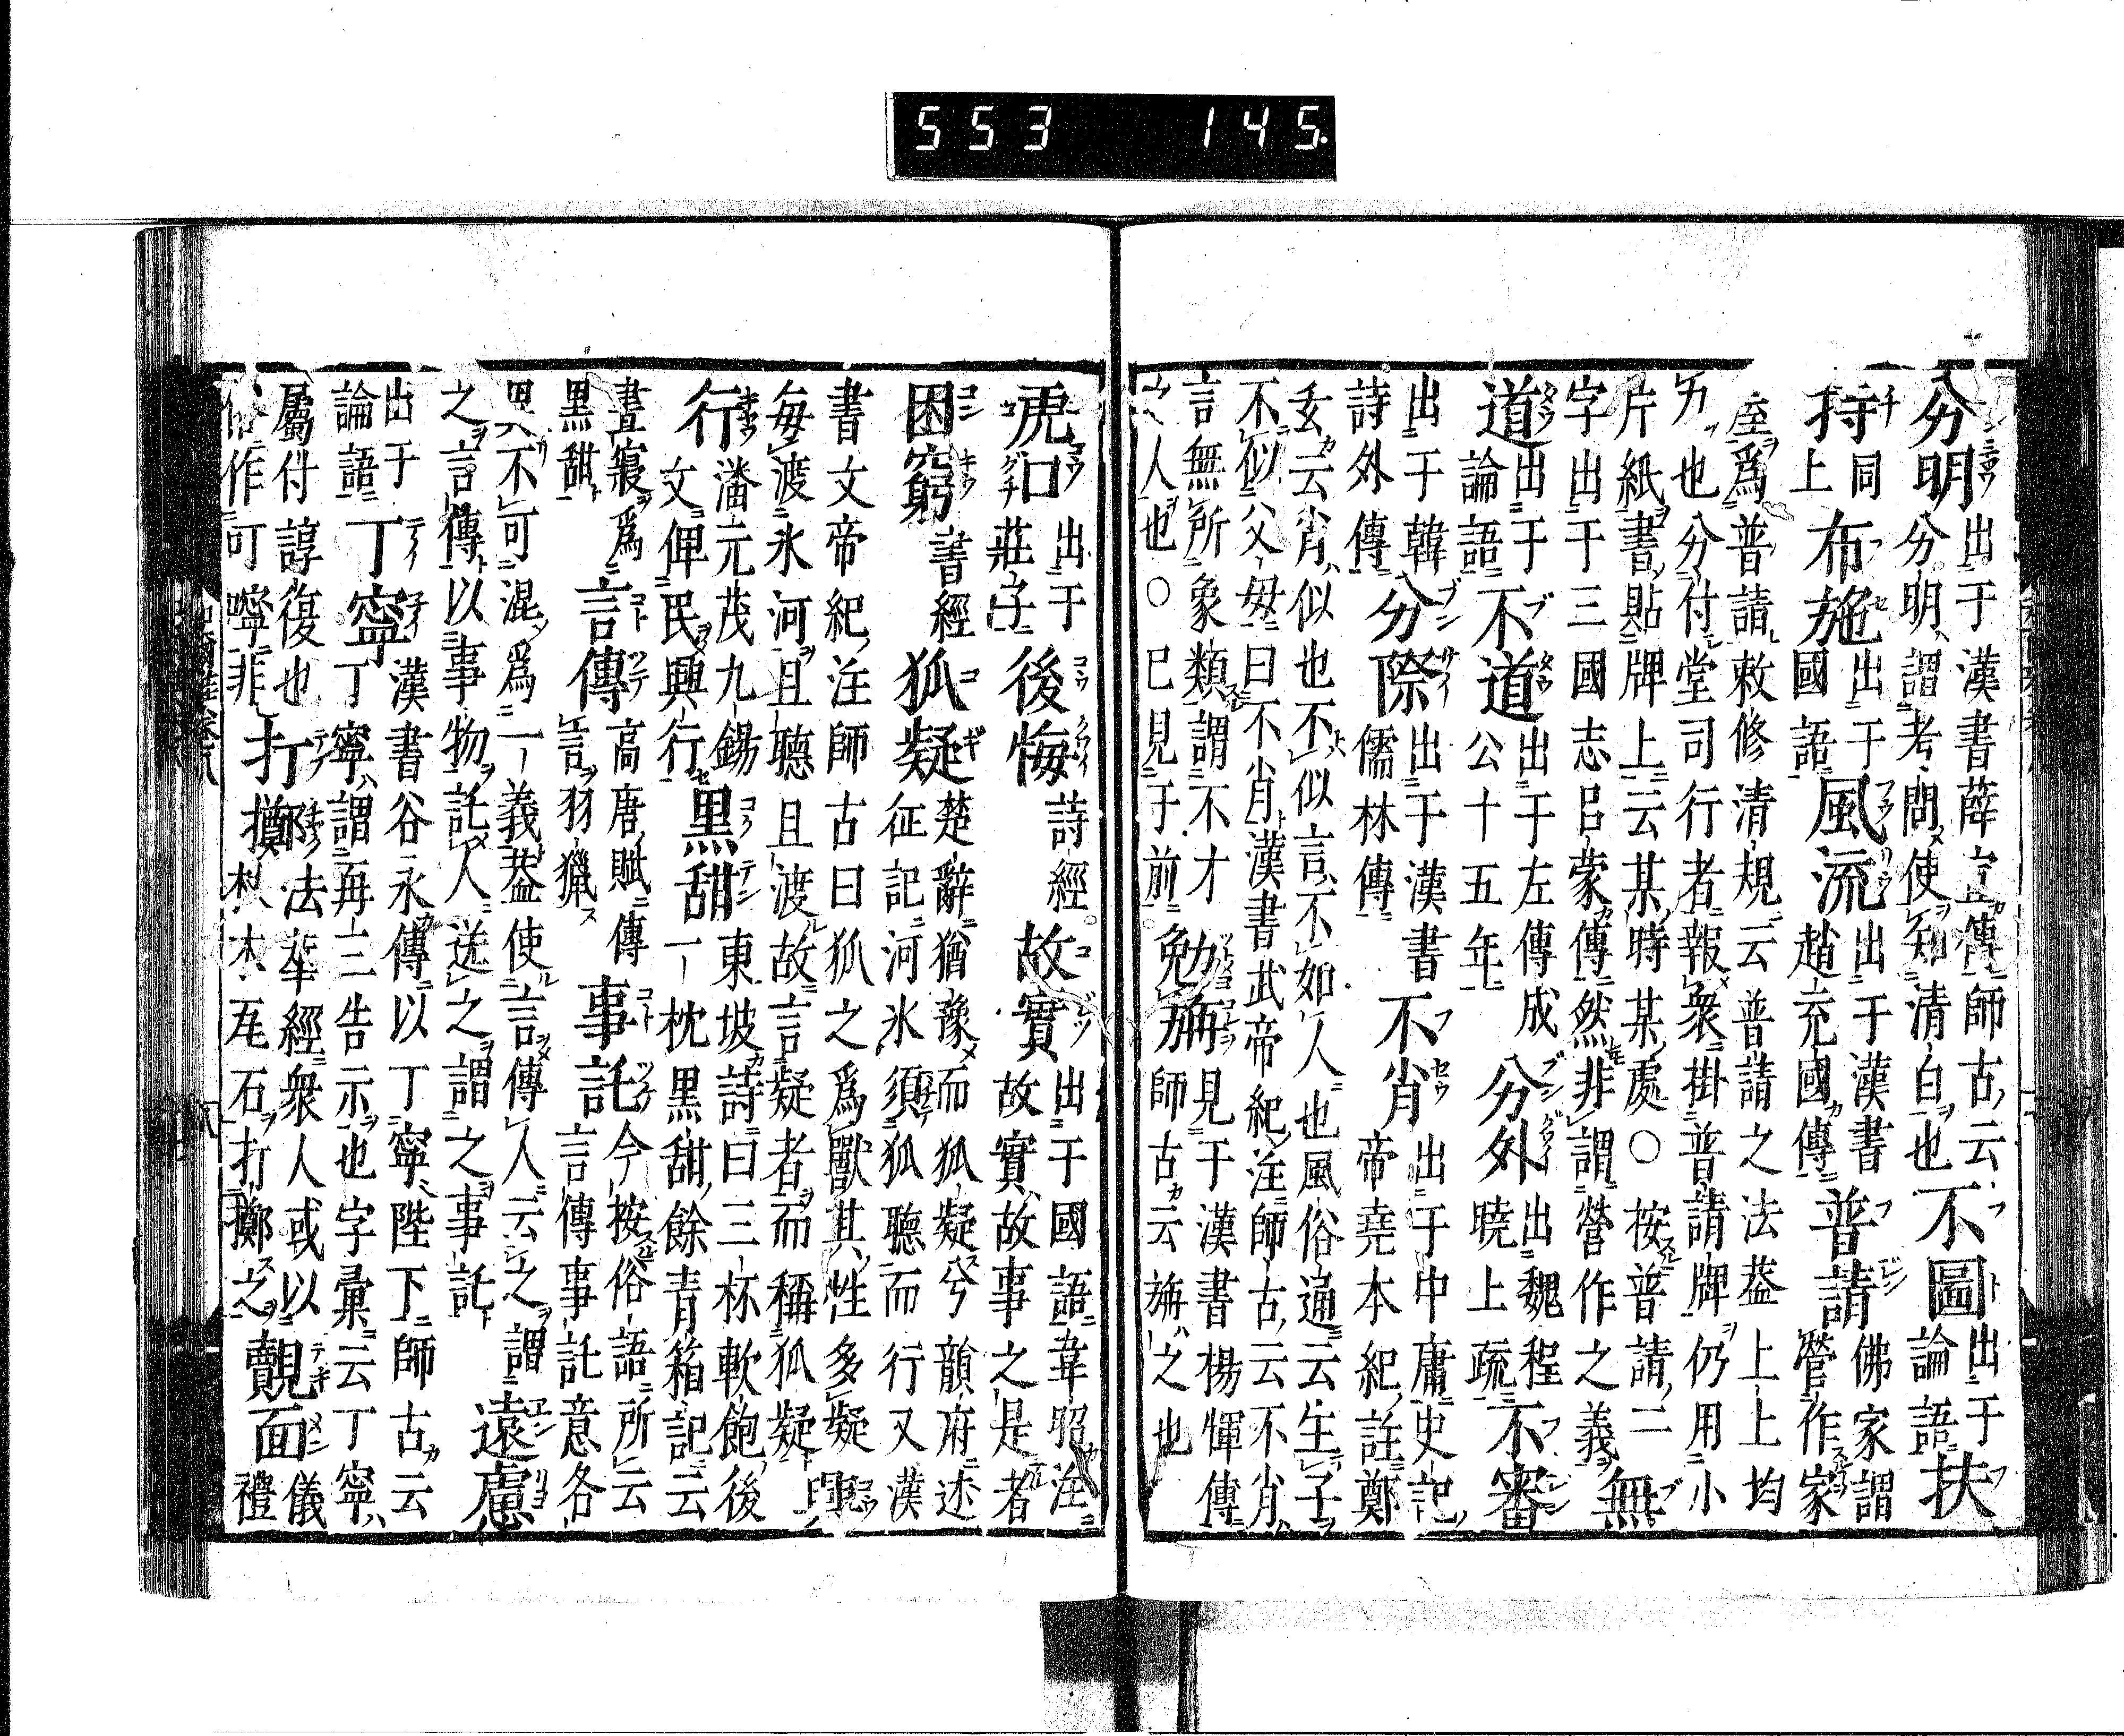 分明 出于漢書薛宣傳師古云
分明謂考問使知清白也 不圖 出于
論語 扶
持 同
上 布施 出于
國語 風流 出于漢書
趙充國傳 普請 佛家謂
營作家
室爲普請敕修清規云普請之法葢上上均
力也分付堂司行者報衆掛普請牌仍用小
片紙書貼牌上云某時某處○按普請二
字出于三國志呂蒙傳然非謂營作之義 無
道 出于
論語 不道 出于左傳成
公十五年 分外 出魏程
曉上疏 不審
出于韓
詩外傳 分際 出于漢書
儒林傳 不肖 出于中庸史記
帝堯本紀註鄭
玄云肖似也不似言不如人也風俗通云生子
不似父毋曰不肖漢書武帝紀注師古云不肖
言無所象類謂不才
之人也○已見于前 勉旃 見于漢書楊惲傳
師古云旃之也
虎口 出于
莊子 後悔 詩經 故實 出于國語韋昭注
故實故事之是者
困窮 書經 狐疑 楚辭猶豫而狐疑兮韻府述
征記河氷須狐聽而行又漢
書文帝紀注師古曰狐之爲獸其性多疑
每渡氷河且聽且渡故言疑者而稱狐疑 興
行 潘元茂九錫
文俾民興行 黒甜 東坡詩曰三杯軟飽後
一枕黒甜餘青箱記云
晝寢爲
黒甜 言傳 高唐賦傳
言羽獵 事託 今按俗語所云
言傳事託意各
異不可混爲一義葢使言傳人云之謂
之言傳以事物託人送之謂之事託 遠慮
出于
論語 丁寧 漢書谷永傳以丁寧陛下師古云
丁寧謂再三告示也字彙云丁寧
屬付諄復也
俗作叮嚀非 打擲 法華經衆人或以
杖木瓦石打擲之 覿面 儀
禮
553 145